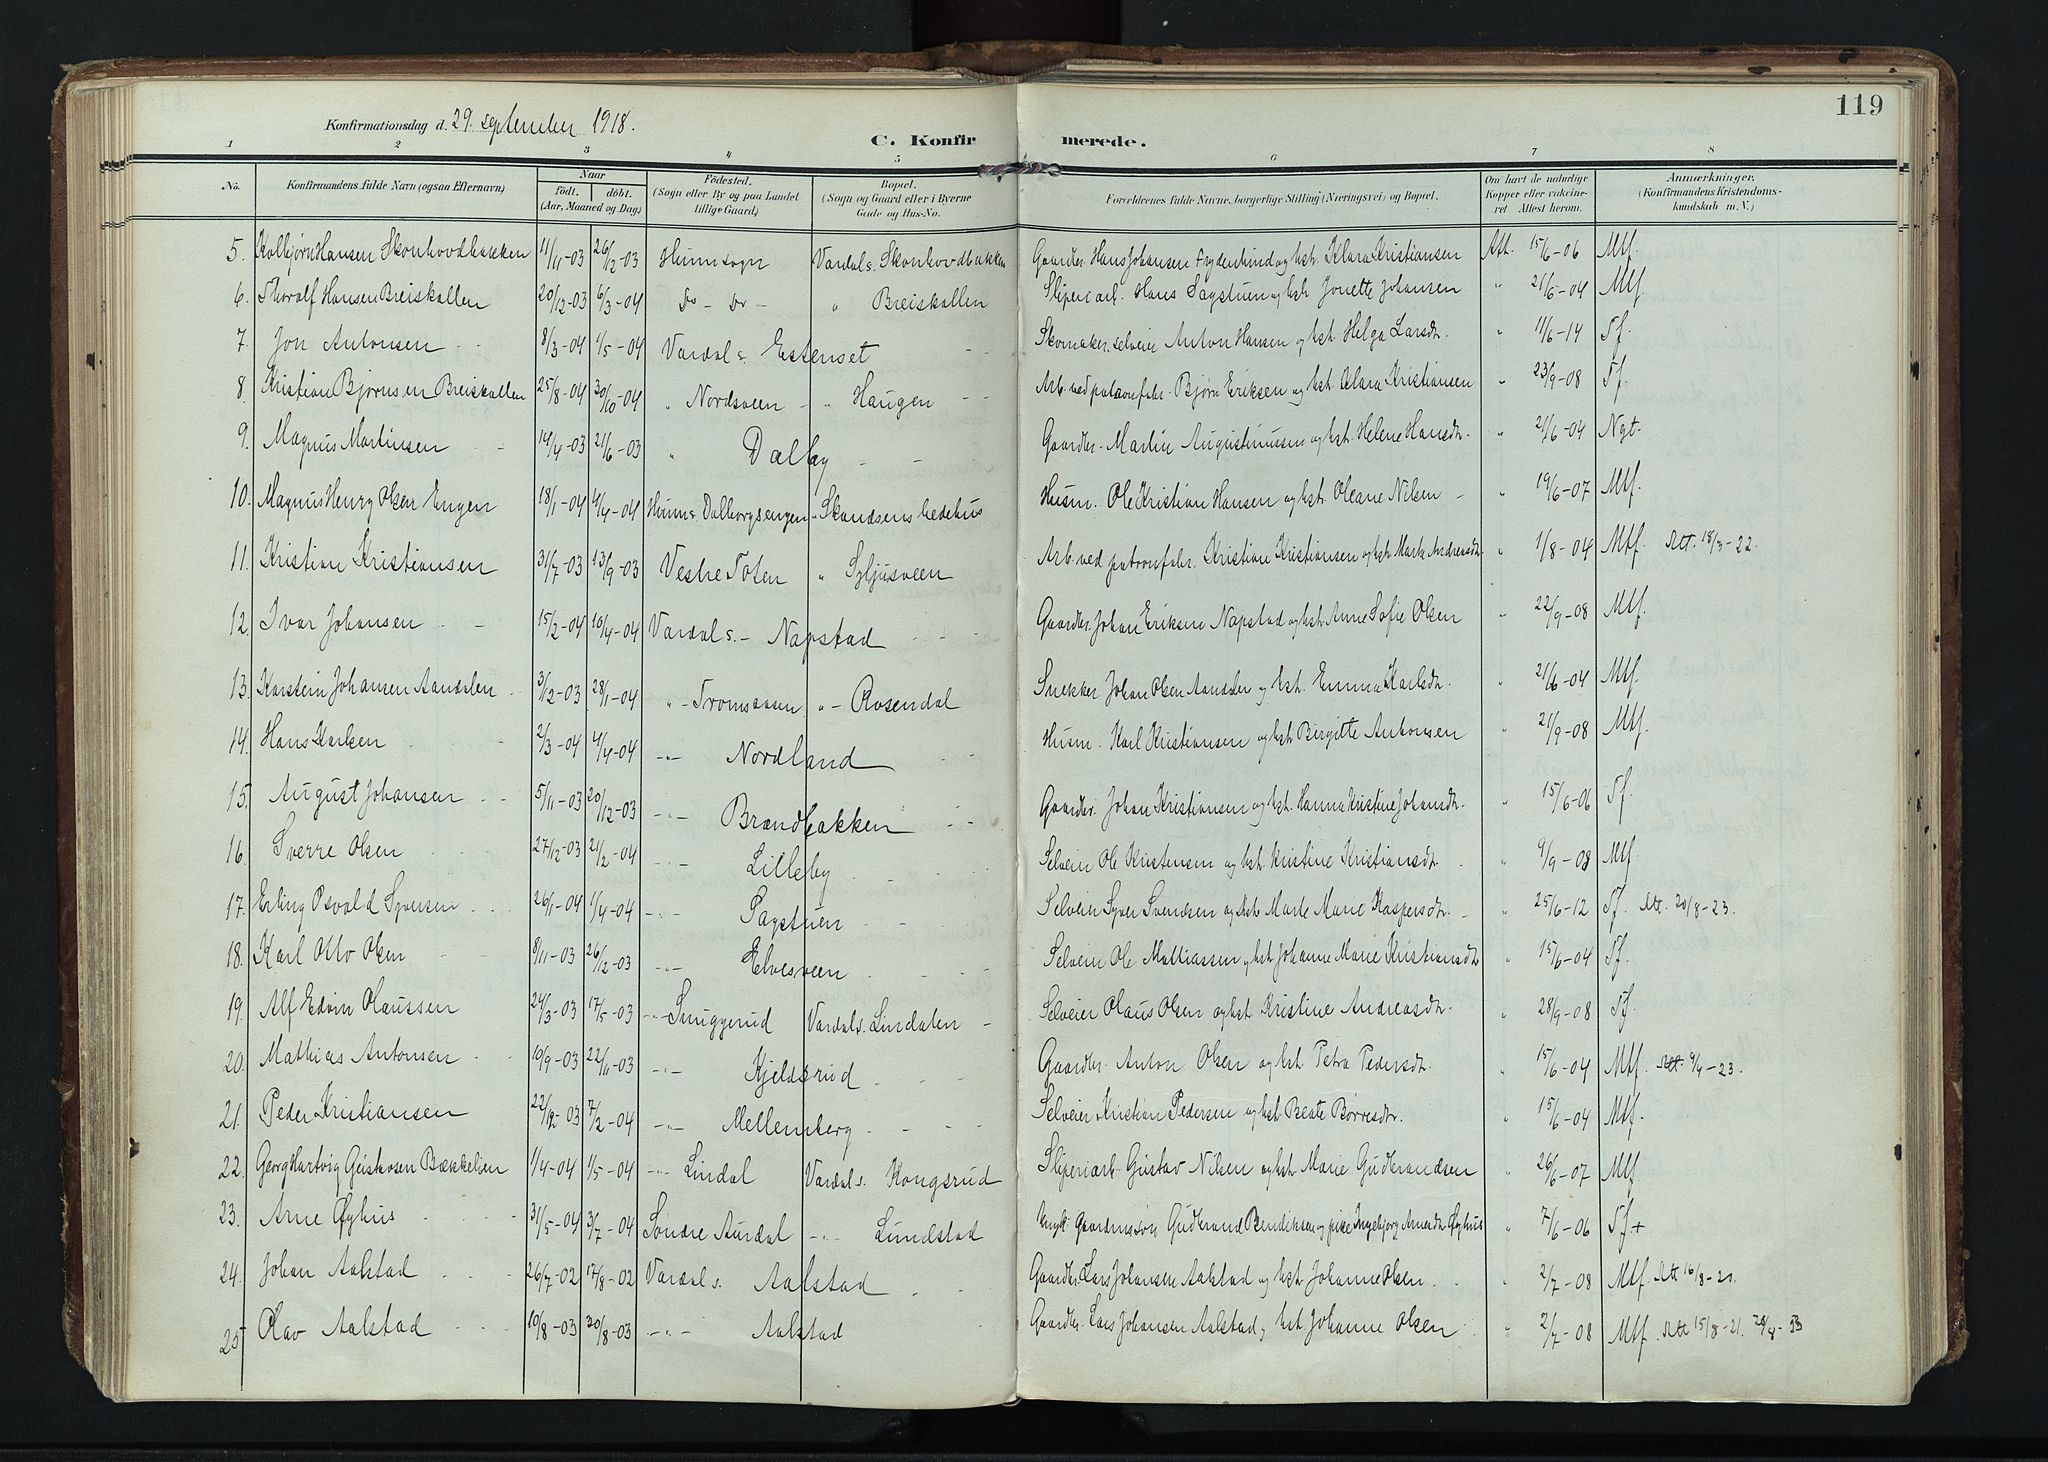 119
Konfirmationsdag d. 29. september 1918.
C. Konfirmerede.
1 2 3 4 5 6 7 8
No. Konfirmandens fulde Navn (ogsaa Efternavn) Naar født. døbt. (Aar, Maaned og Dag) Fødested. (Sogn eller By og paa Landet tillige Gaard) Bopæl. (Sogn og Gaard eller i Byerne Gade og Hus-No. Forældrenes fulde Navne, borgerlige Stilling (Næringsvei) og Bopæl. Om havt de naturlige Kopper eller vakcineret Attest herom. Anmærkninger. (Konfirmandens Kristendomskundskab m. V.)
5. Kolbjørn Hansen Skonhovdbakken 11/11-03 26/12-03 Hunn sogn Vardal s. Skonhovdbakken Gaardbr. Hans Johansen Frydenlund og hst. Klara Kristiansen Att. 15/6-06 Mtf.
6. Thoralf Hansen Breiskallen 20/12-03 6/3-04 do - do - " Breiskallen Sliperiarb. Hans Sagstuen og hst. Jonette Johansen " 21/6-04 Mtf.
7. Jon Antonsen 8/3-04 1/5-04 Vardal s. Estenset Skomaker, selveier Anton Hansen og hst. Helga Larsdr. " 11/6-14 Tf.
8. Kristian Bjørnsen Breiskallen 25/8-04 30/10-04 " Nordsveen - " Haugen Arb. ved patronfabr. Bjørn Eriksen og hst. Clara Kristiansen " 23/9-08 Tf.
9. Magnus Martinsen 14/4-03 21/6-03 " Dalby Gaardbr. Martin Augustinussen og hst. Helene Hansdr. " 21/6-04 Ngt.
10. Magnus Henry Olsen Engen 18/1-04 4/4-04 Hunn s. Dalborgsengen " Skandsens bedehus Husm. Ole Kristian Hansen og hst. Oleane Nilsen - " 19/6-07 Mtf.
11. Kristian Kristiansen 31/7-03 13/9-03 Vestre Toten " Syljusveen Arb. ved patronfabr. Kristian Kristiansen og hst. Marte Andreasdr. " 1/8-04 Mtf. Att. 18/3-22.
12. Ivar Johansen 15/2-04 10/4-04 Vardal s. - Napstad Gaardbr. Johan Eriksen Napstad og hst. Anne Sofie Olsen " 22/9-08 Mtf.
13. Karstein Johansen Aandalen 3/12-03 28/1-04 " - Tromsaasen " - Rosendal Snekker Johan Olsen Aandalen og hst. Emma Karlsdr. " 21/6-04 Mtf.
14. Hans Karlsen 2/3-04 4/4-04 -"- Nordland Husm. Karl Kristiansen og hst. Birgitte Antonsen " 21/9-08 Mtf.
15. August Johansen 5/11-03 20/12-03 -"- Brændbakken Gaardbr. Johan Kristiansen og hst. Hanna Kristine Johansdr. " 15/6-06 Tf.
16. Sverre Olsen 27/12-03 21/2-04 -"- Lilleby Selveier Ole Kristensen og hst. Kristine Kristiansdr. " 9/9-08 Mtf.
17. Erling Osvald Syversen 26/1-04 1/4-04 -"- Sagstuen Selveier Syver Svendsen og hst. Marte Marie Kaspersdr. - " 25/6-12 Tf. Att. 20/8-23.
18. Karl Otto Olsen 8/11-03 26/12-03 -"- Elvesveen Selveier Ole Mathiassen og hst. Johanne Marie Kristiansdr. " 15/6-04 Tf.
19. Alf Edvin Olaussen 24/3-03 17/5-03 -"- Snuggerud Vardal s. Lindalen - Selveier Olaus Olsen og hst. Kristine Andreasdr. " 28/9-08 Tf.
20. Mathias Antonsen 10/9-03 22/11-03 -"- Kjeldsrud Gaardbr. Anton Olsen og hst. Petra Pedersdr. " 15/6-04 Mtf. Att. 9/4-23.
21. Peder Kristiansen 22/12-03 7/2-04 -"- Mellemberg Selveier Kristian Pedersen og hst. Beate Børresdr. " 15/6-04 Mtf.
22. Georg Hartvig Gustavsen Bækkelien 1/4-04 1/5-04 -"- Lindal Vardal s. Kongsrud Sliperiarb. Gustav Nilsen og hst. Marie Gudbrandsen " 26/6-07 Mtf.
23. Arne Øyhus 31/5-04 3/7-04 Søndre Aurdal -"- Lundstad Ungk. Gaardmssøn Gudbrand Bendiksen og pike Ingebjørg Arnesdr. Øyhus " 7/6-06 Tf +
24. Johan Aalstad 26/7-02 17/8-02 Vardal s. Aalstad Gaardbr. Lars Johansen Aalstad og hst. Johanne Olsen . " 2/7-08 Mtf. Att 16/8-21.
25 Olav Aalstad 10/8-03 30/8-03 -"- Aalstad Gaardbr. Lars Johansen Aalstad og hst. Johanne Olsen . " 2/7-08 Mtf. Att 15/8-21. 28/8-53